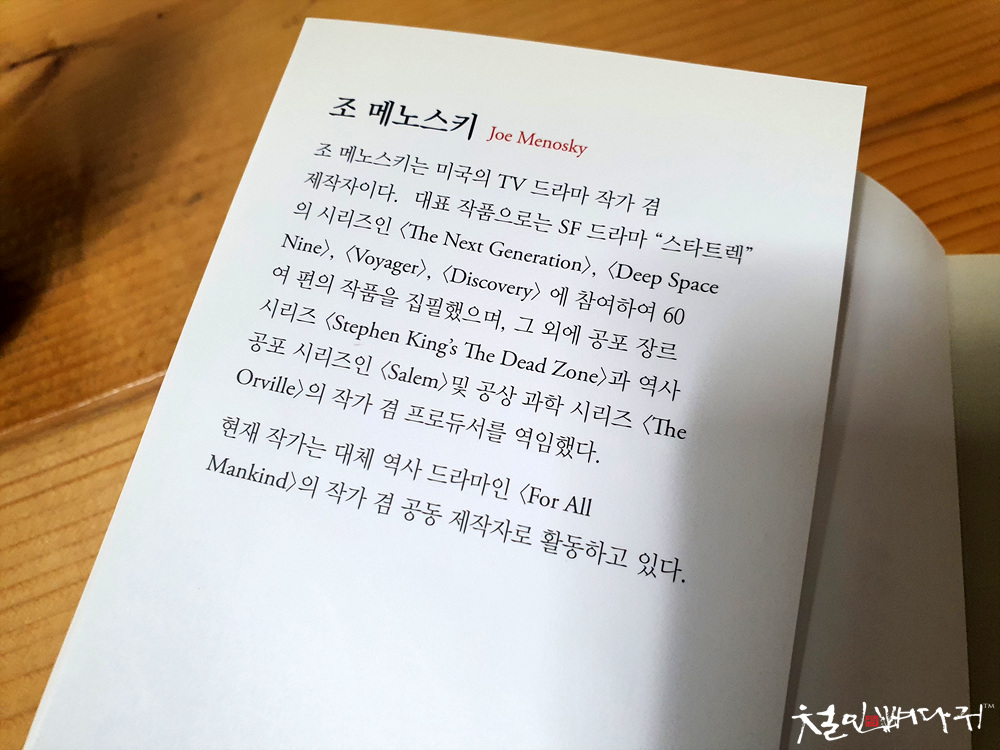 조 메노스키 Joe Menosky
조 메노스키는 미국의 TV 드라마 작가 겸
제작자이다. 대표 작품으로는 SF 드라마 “스타트렉”
의 시리즈인 〈The Next Generation〉, 〈Deep Space
Nine〉, 〈Voyager〉, 〈Discovery〉 에 참여하여 60
여 편의 작품을 집필했으며, 그 외에 공포 장르
시리즈 〈Stephen King’s The Dead Zone〉과 역사
공포 시리즈인 〈Salem〉및 공상 과학 시리즈 〈The
Orville〉의 작가 겸 프로듀서를 역임했다.
현재 작가는 대체 역사 드라마인 〈For All
Mankind〉의 작가 겸 공동 제작자로 활동하고 있다.
철민뼈다귀™